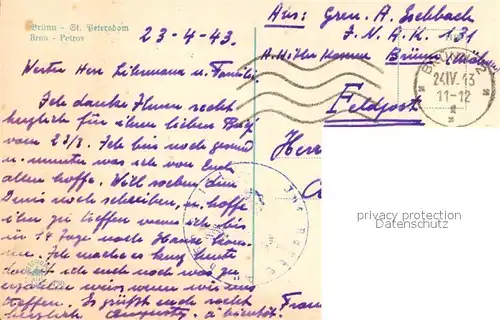 Brünn - St. Petersdom
Brno - Petrov
23-4-43.
Werter Herr Lihrmann u. Familie
Ich danke Ihnen recht
herzlich für ihren lieben Brief
vom 23/3. Ich bin noch gesund
u. munter was ich von Euch
allen hoffe. Will soeben dem
Denis noch schreiben, u. hoffe
ihn zu treffen wenn ich bis
in 14 Tage nach Hause komme.
Ich mache es kurz
ich Euch noch was zu
erzählen weis wenn wir uns
treffen. Es grüßt Euch recht
herzlich Auguste, à bientôt!
Aus: Gren. A. Eschbach
J.N.A.K. 131
A. Hitler Kaserne Brünn
Feldpost
BRÜNN 2
24.IV.43
11-12
Herrn
Fran
privacy protection
watermark